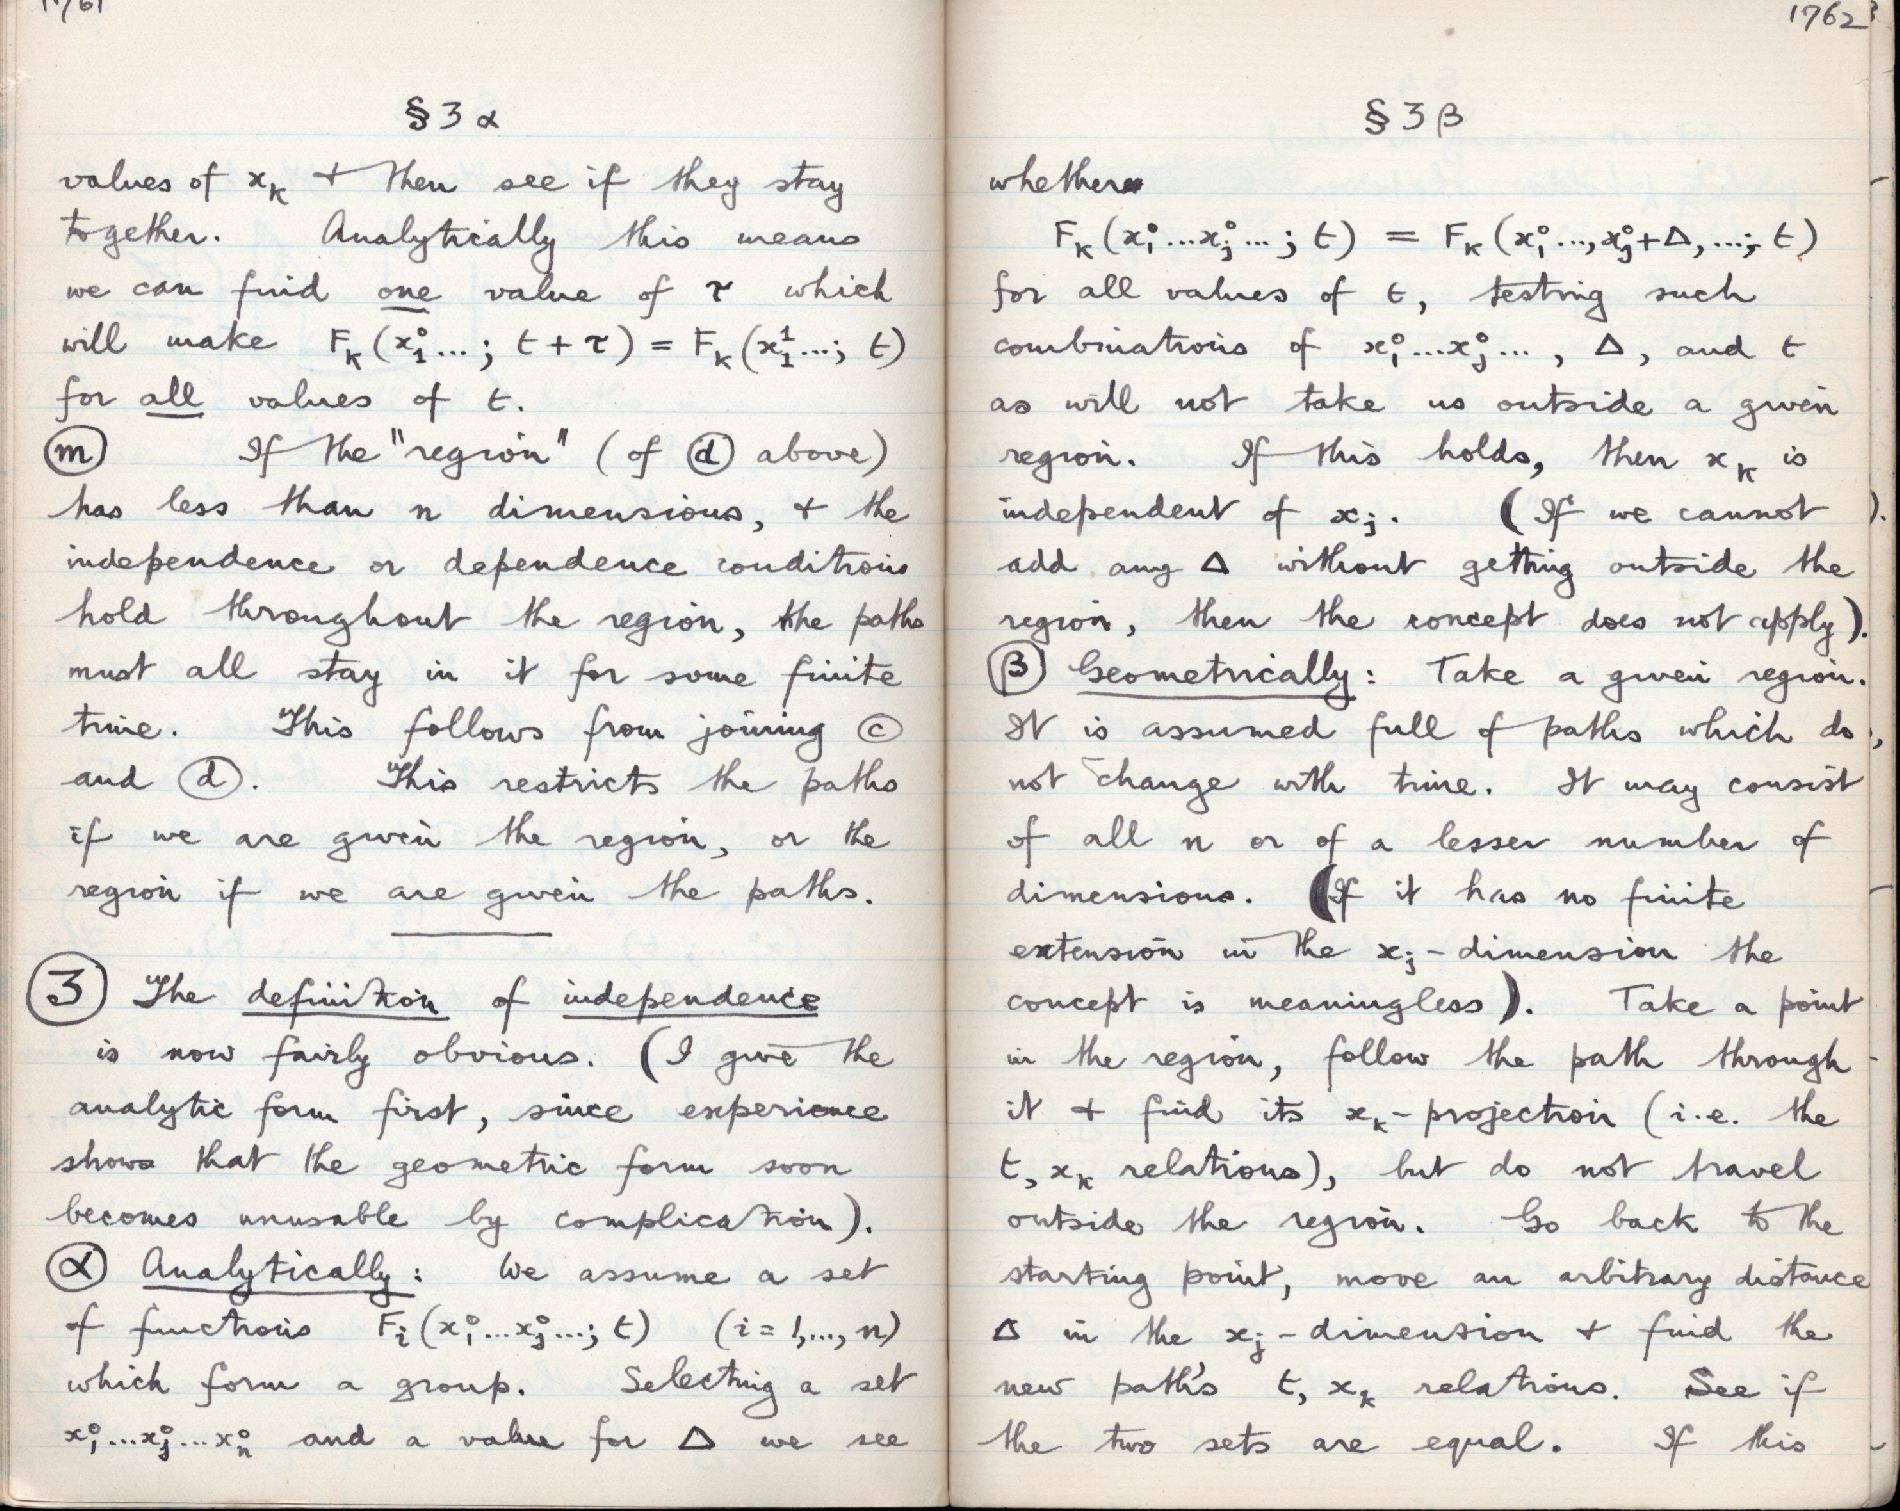 1761
§ 3 α
values of xₖ + then see if they stay
together. Analytically this means
we can find one value of τ which
will make Fₖ(x₁⁰...; t + τ) = Fₖ(x₁¹...; t)
for all values of t.
ⓜ If the "region" (of ⓓ above)
has less than n dimensions, + the
independence or dependence conditions
hold throughout the region, the paths
must all stay in it for some finite
time. This follows from joining ⓒ
and ⓓ. This restricts the paths
if we are given the region, or the
region if we are given the paths.
③ The definition of independence
is now fairly obvious. (I give the
analytic form first, since experience
shows that the geometric form soon
becomes unusable by complication).
(α) Analytically: We assume a set
of functions Fᵢ(x₁⁰...xⱼ⁰...; t) (i = 1,..., n)
which form a group. Selecting a set
x₁⁰...xⱼ⁰...xₙ⁰ and a value for Δ we see
1762
§ 3 β
whether
Fₖ(x₁⁰...xⱼ⁰...; t) = Fₖ(x₁⁰..., xⱼ⁰+Δ, ...; t)
for all values of t, testing such
combinations of x₁⁰...xⱼ⁰..., Δ, and t
as will not take us outside a given
region. If this holds, then xₖ is
independent of xⱼ. (If we cannot
add any Δ without getting outside the
region, then the concept does not apply).
(β) Geometrically: Take a given region.
It is assumed full of paths which do
not change with time. It may consist
of all n or of a lesser number of
dimensions. (If it has no finite
extension in the xⱼ-dimension the
concept is meaningless). Take a point
in the region, follow the path through
it + find its xₖ-projection (i.e. the
t, xₖ relations), but do not travel
outside the region. Go back to the
starting point, move an arbitrary distance
Δ in the xⱼ-dimension + find the
new path's t, xₖ relations. See if
the two sets are equal. If this